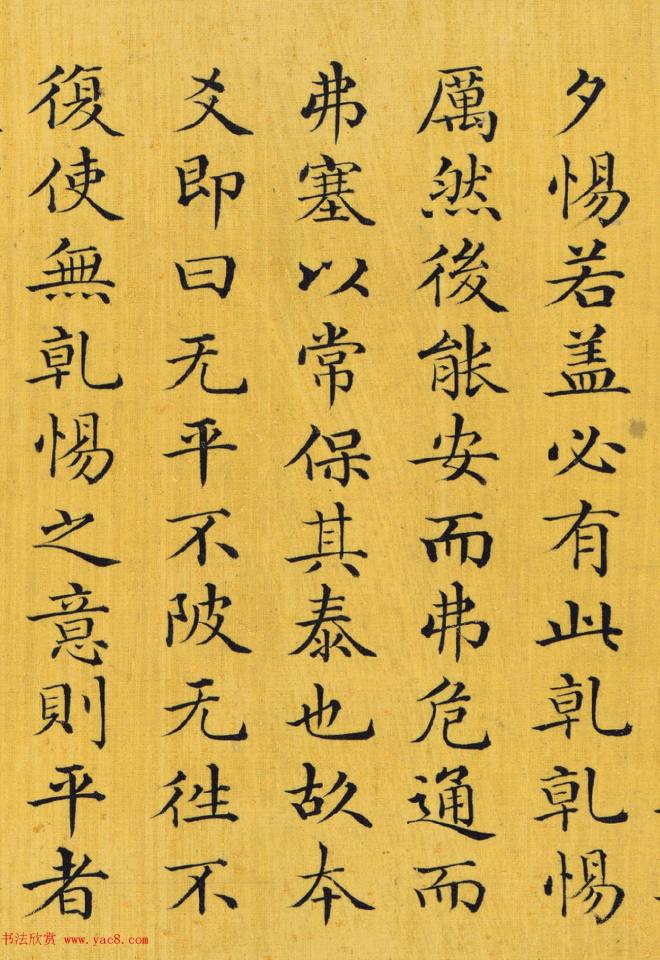 夕惕若盖必有此乹乹惕
厲然後能安而弗危通而
弗塞以常保其泰也故本
爻即曰无平不陂无徃不
復使無乹惕之意則平者
书法欣赏 www.yac8.com